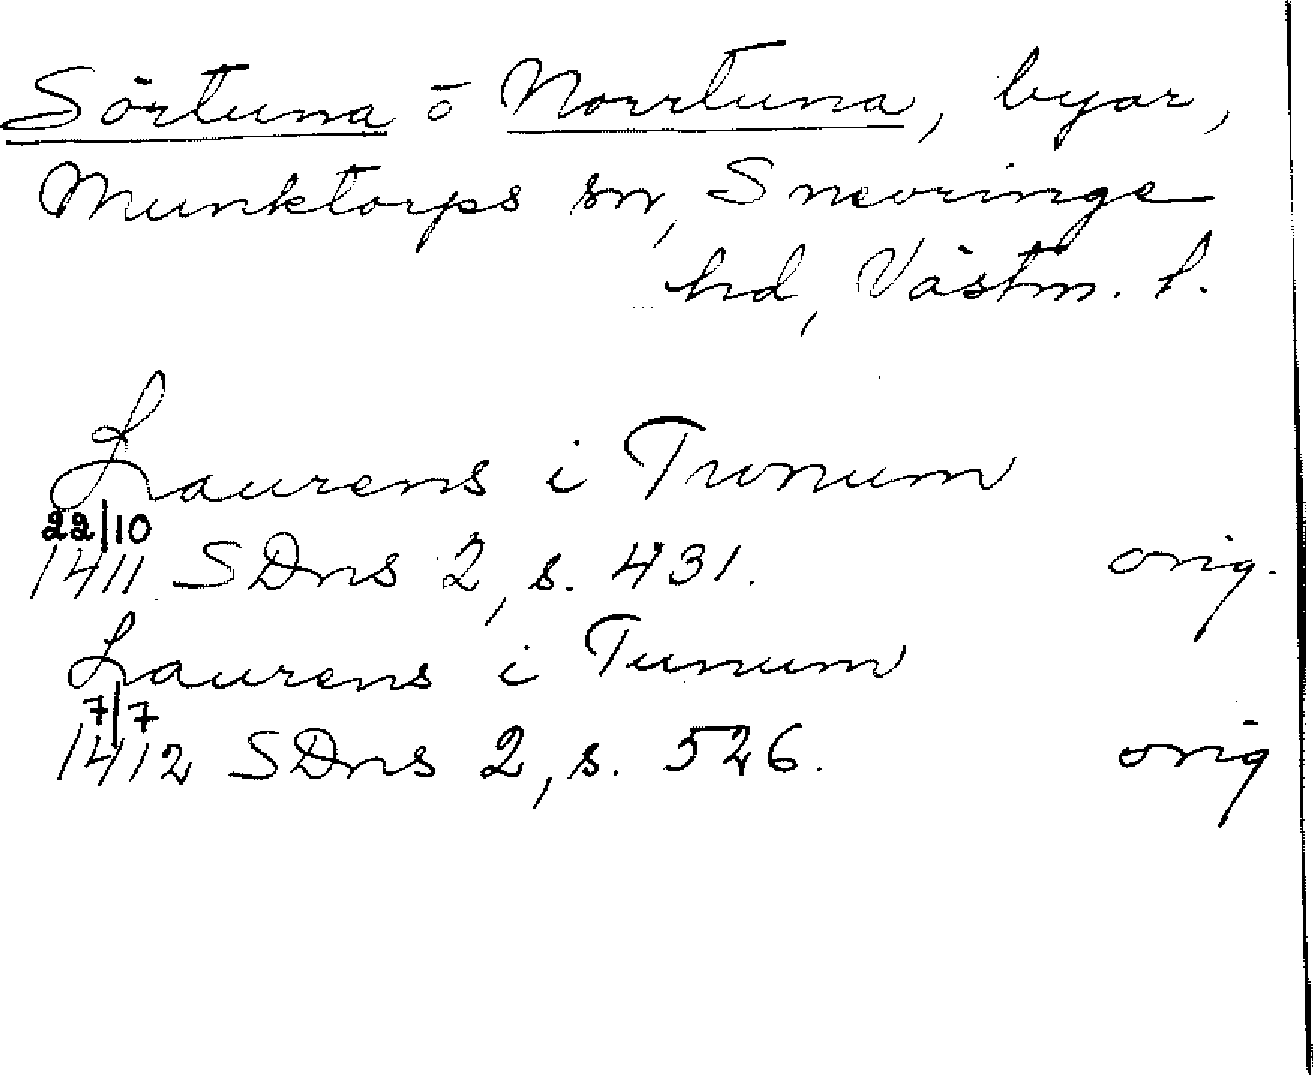 Sörtuna o Norrtuna, byar,
Munktorps sn, Snevringe
hd, Västm. l.
Laurens i Tronum
22/10
1411 SDns 2, s. 431. orig.
Laurens i Tunum
7/7
1412 SDns 2, s. 526. orig